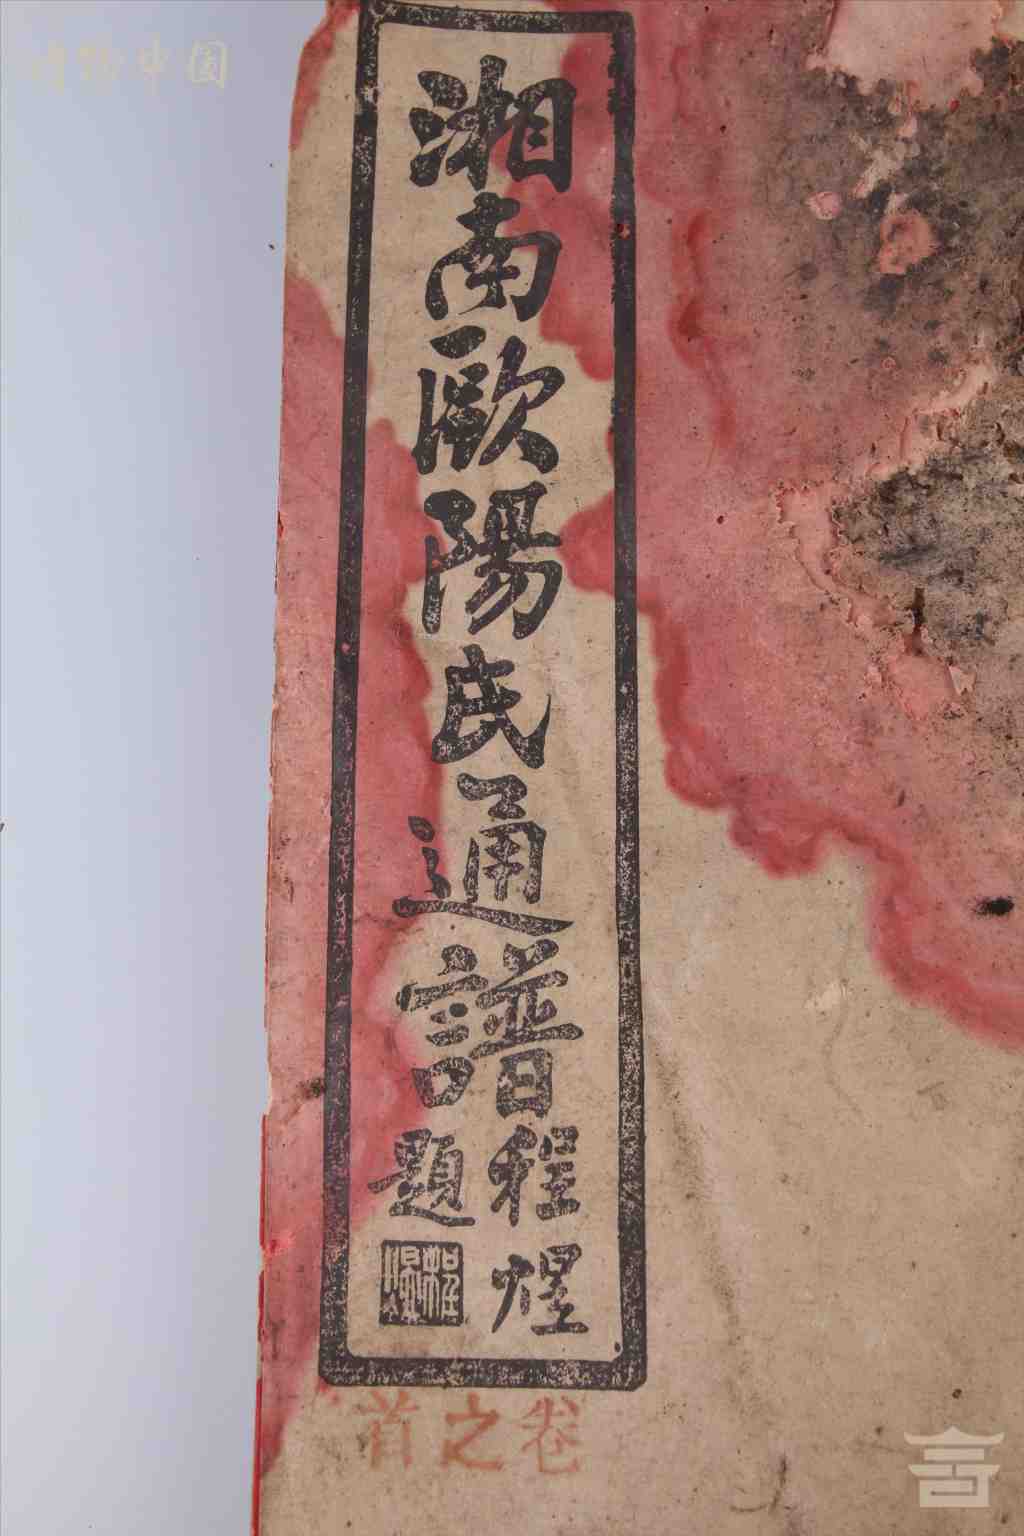 湘南歐陽氏通譜
程煜
題
卷之首
中国